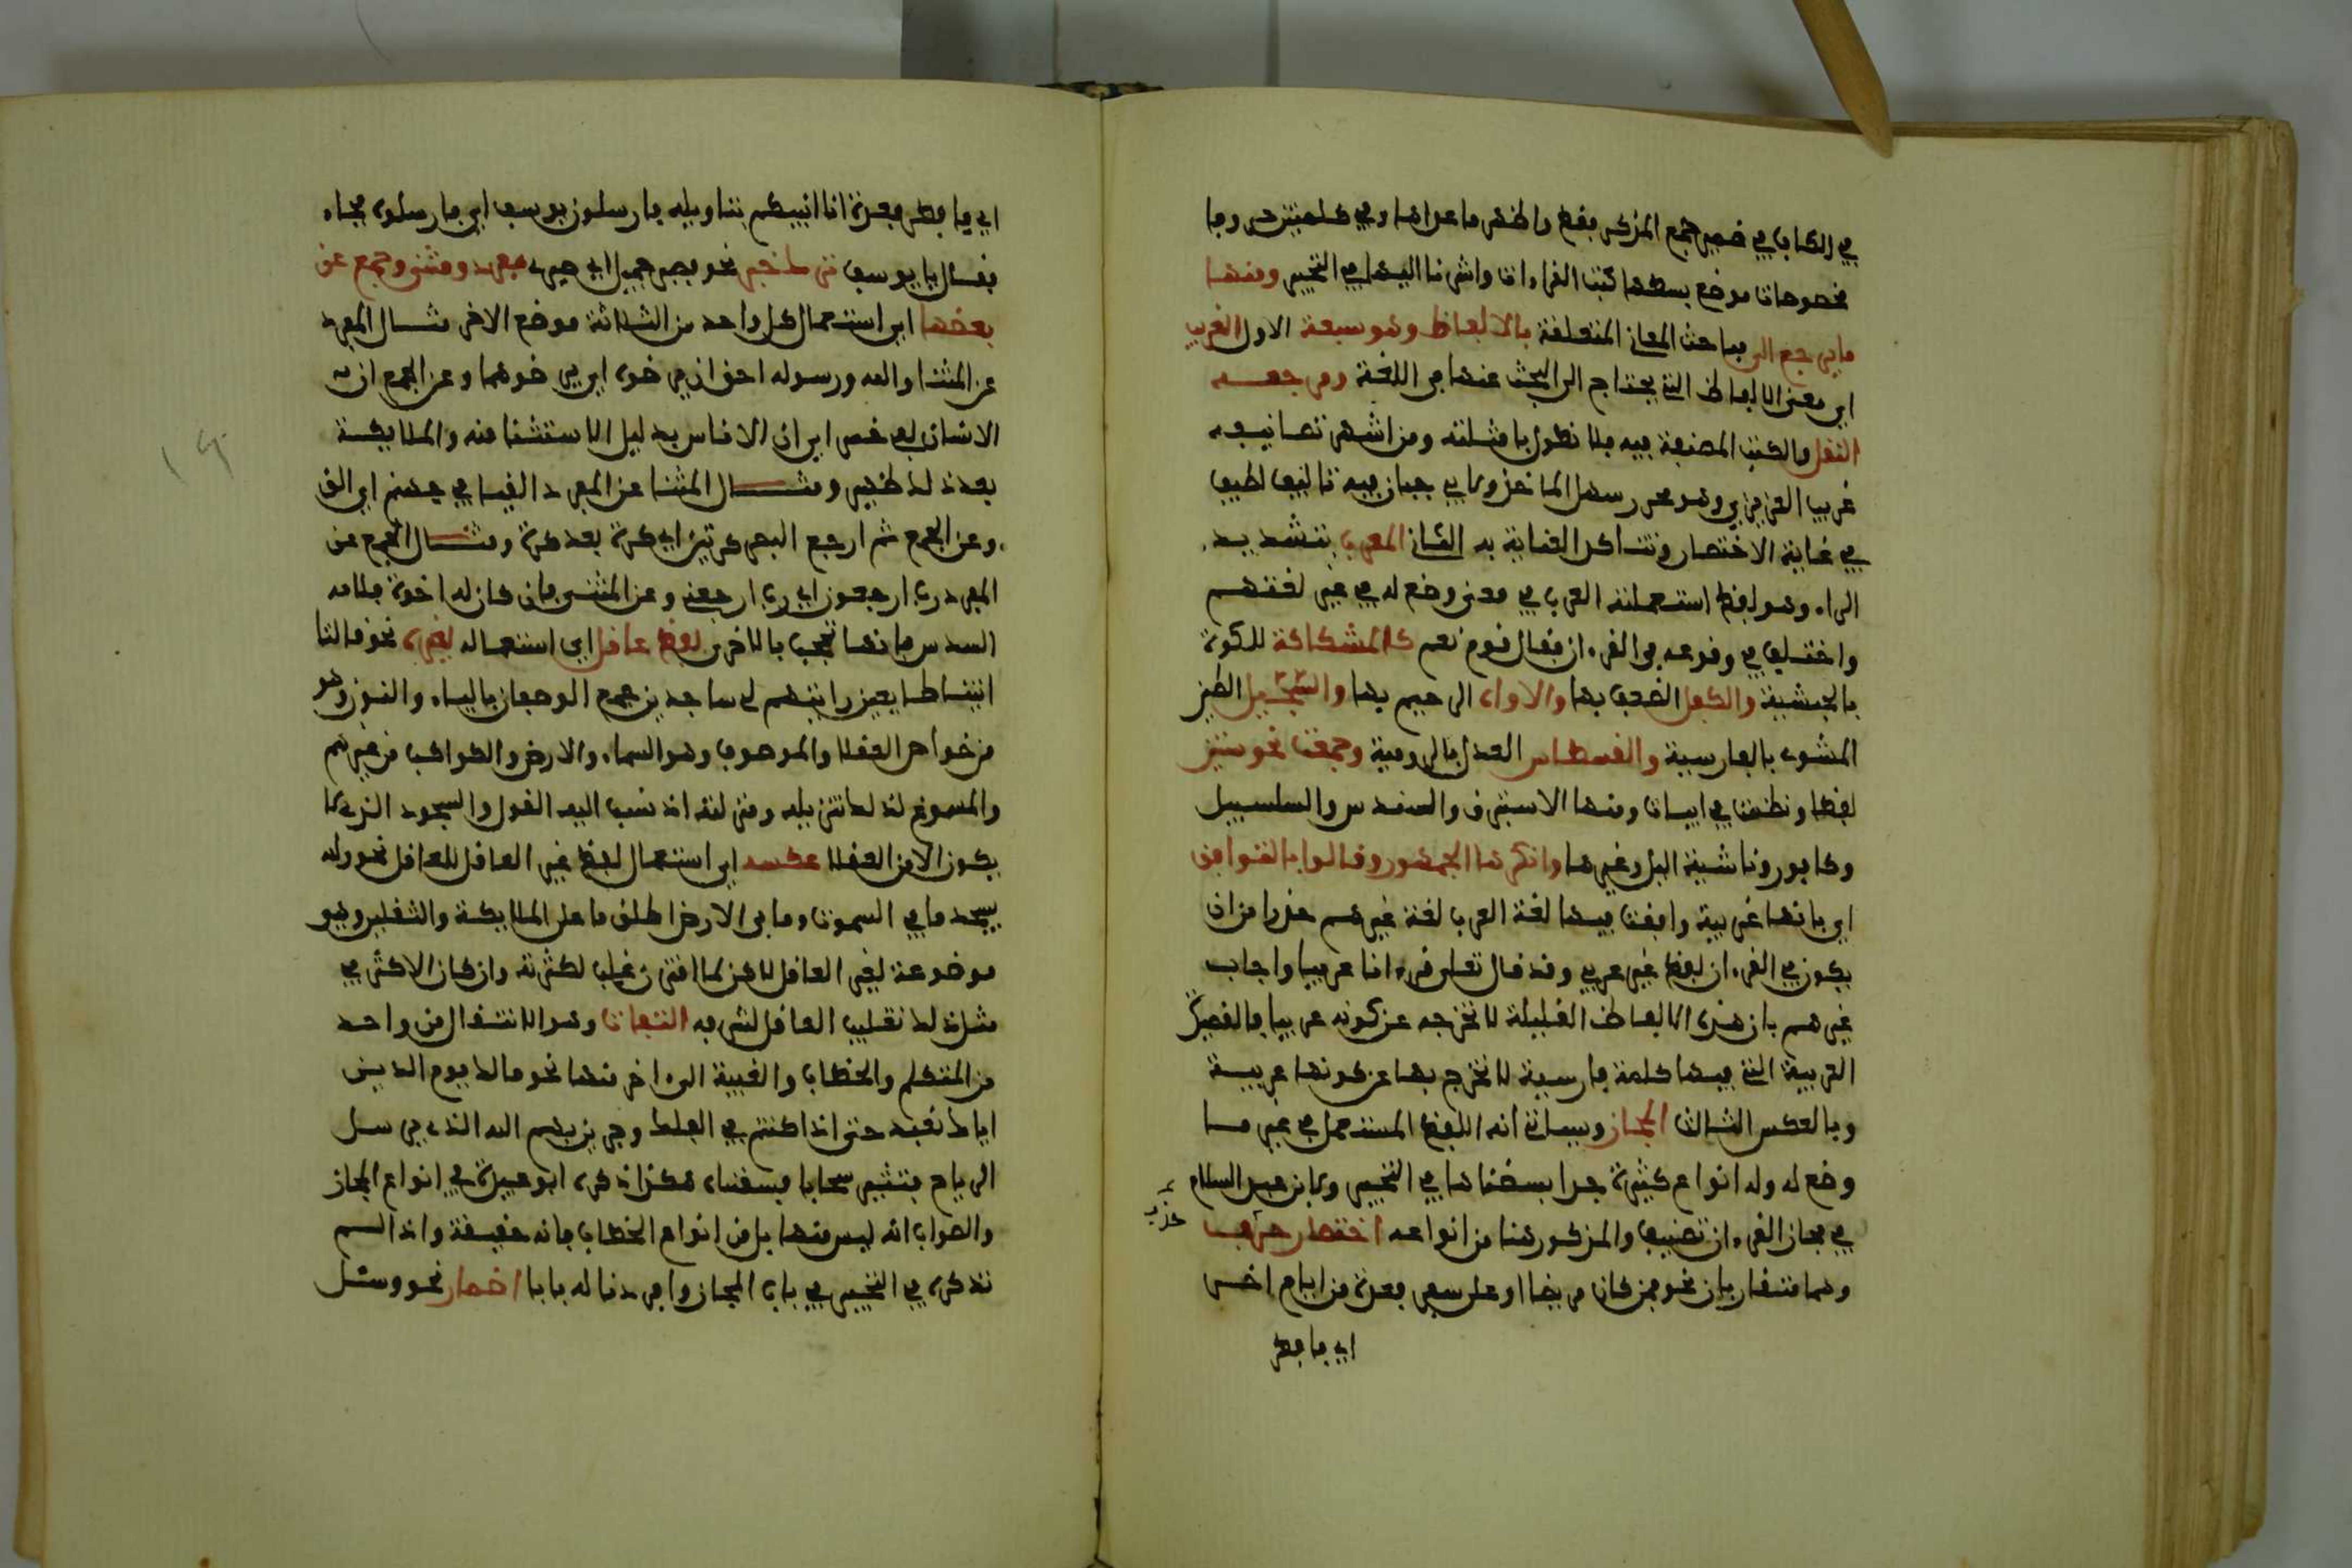 في الكاف في ضمير جمع المذكر فقط واظهر ما عداها وفي كلمتين حروفا
مخصوصات موضع بسطها كتب القراءات واشرنا اليها في التحبير ومنها
ما يرجع الى مباحث المعاني المتعلقة بالالفاظ وهو سبعة الاول الغريب
اي معنى الالفاظ التي يحتاج الى البحث عنها في اللغة ومرجعه
النقل والكتب المصنفة فيه فلا نطول بامثلته ومن اشهر تصانيفه
غريب العزيزي وهو محرر سهل الماخذ ولابي حيان فيه تاليف لطيف
في غاية الاختصار وتتاكد العناية به الثاني المعرب بتشديد
الراء وهو لفظ استعملته العرب في معنى وضع له في غير لغتهم
واختلف في وقوعه في القرءان فقال قوم نعم كالمشكاة للكوة
بالحبشية والكفل الضعف بها والاواه الرحيم بها والسجيل الطين
المشوي بالفارسية والقسطاس العدل بالرومية وجمعت نحو ستين
لفظا ونظمت في ابيات ومنها الاستبرق والسندس والسلسبيل
وكافور وناشية اليل وغيرها وانكرها الجمهور وقالوا بالتوافق
اي بانها عربية وافقت فيها لغة العرب لغة غيرهم حذرا من ان
يكون في القرءان لفظ غير عربي وقد قال تعلى قرءانا عربيا واجاب
غيرهم بان هذه الالفاظ القليلة لا تخرجه عن كونه عربيا فالقصيدة
العربية التي فيها كلمة فارسية لا تخرج بها عن كونها عربية
وبالعكس الثالث المجاز وسياتي انه اللفظ المستعمل في غير ما
وضع له وله انواع كثيرة جدا بسطناها في التحبير ولابن عبد السلام
في مجاز القرءان تصنيف والمذكور هنا من انواعه اختصار حذف
وهما متقاربان نحو فمن كان مريضا او على سفر فعدة من ايام اخر
اي فافطر
اي فافطر فعدة انا انبيكم بتاويله فارسلون يوسف اي فارسلوه فجاء
فقال يا يوسف ترك خبر نحو فصبر جميل اي صبري مفرد ومثنى وجمع عن
بعضها اي استعمال كل واحد من الثلاثة موضع الاخر مثال المفرد
عن المثنا والله ورسوله احق ان يرضوه اي يرضوهما وعن الجمع ان
الانسان لفي خسر اي ان الاناس بدليل الاستثنا منه والملايكة
بعد ذلك ظهير ومثال المثنا عن المفرد القيا في جهنم اي الق
وعن الجمع ثم ارجع البصر كرتين اي كرة بعد كرة ومثال الجمع عن
المفرد رب ارجعون اي رب ارجعني وعن المثنى فان كان له اخوة فلامه
السدس فانها تحجب بالاخوين لفظ عاقل اي استعماله لغيره نحو قالتا
اتينا طايعين رايتهم لي ساجدين جمع الوصفان بالياء والنون وهو
من خواص العقلا والموصوف وهو السماء والارض والكواكب من غيرهم
والمسوغ لذلك تنزيله منزلته اذ نسب اليه القول والسجود الذي لا
يكون الا من العقلا عكسه اي استعمال لفظ غير العاقل للعاقل نحو ولله
يسجد ما في السموات وما في الارض اطلق ما على الملايكة والثقلين وهو
موضوعة لغير العاقل لاكن لما اقترن غلب لكثرته وان كان الاكثر في
مثل ذلك تغليب العاقل لشرفه التفات وهو الانتقال من واحد
من المتكلم والخطاب والغيبة الى اخر منها نحو مالك يوم الدين
اياك نعبد حتى اذا كنتم في الفلك وجرين بهم الله الذي يرسل
الرياح فتثير سحابا فسقناه هكذا ذكره ابو عبيدة في انواع المجاز
والصواب انه ليس منها بل من انواع الخطاب فانه حقيقة ولذا لم
نذكره في التحبير في باب المجاز وافردنا له بابا اضمار نحو وسئل